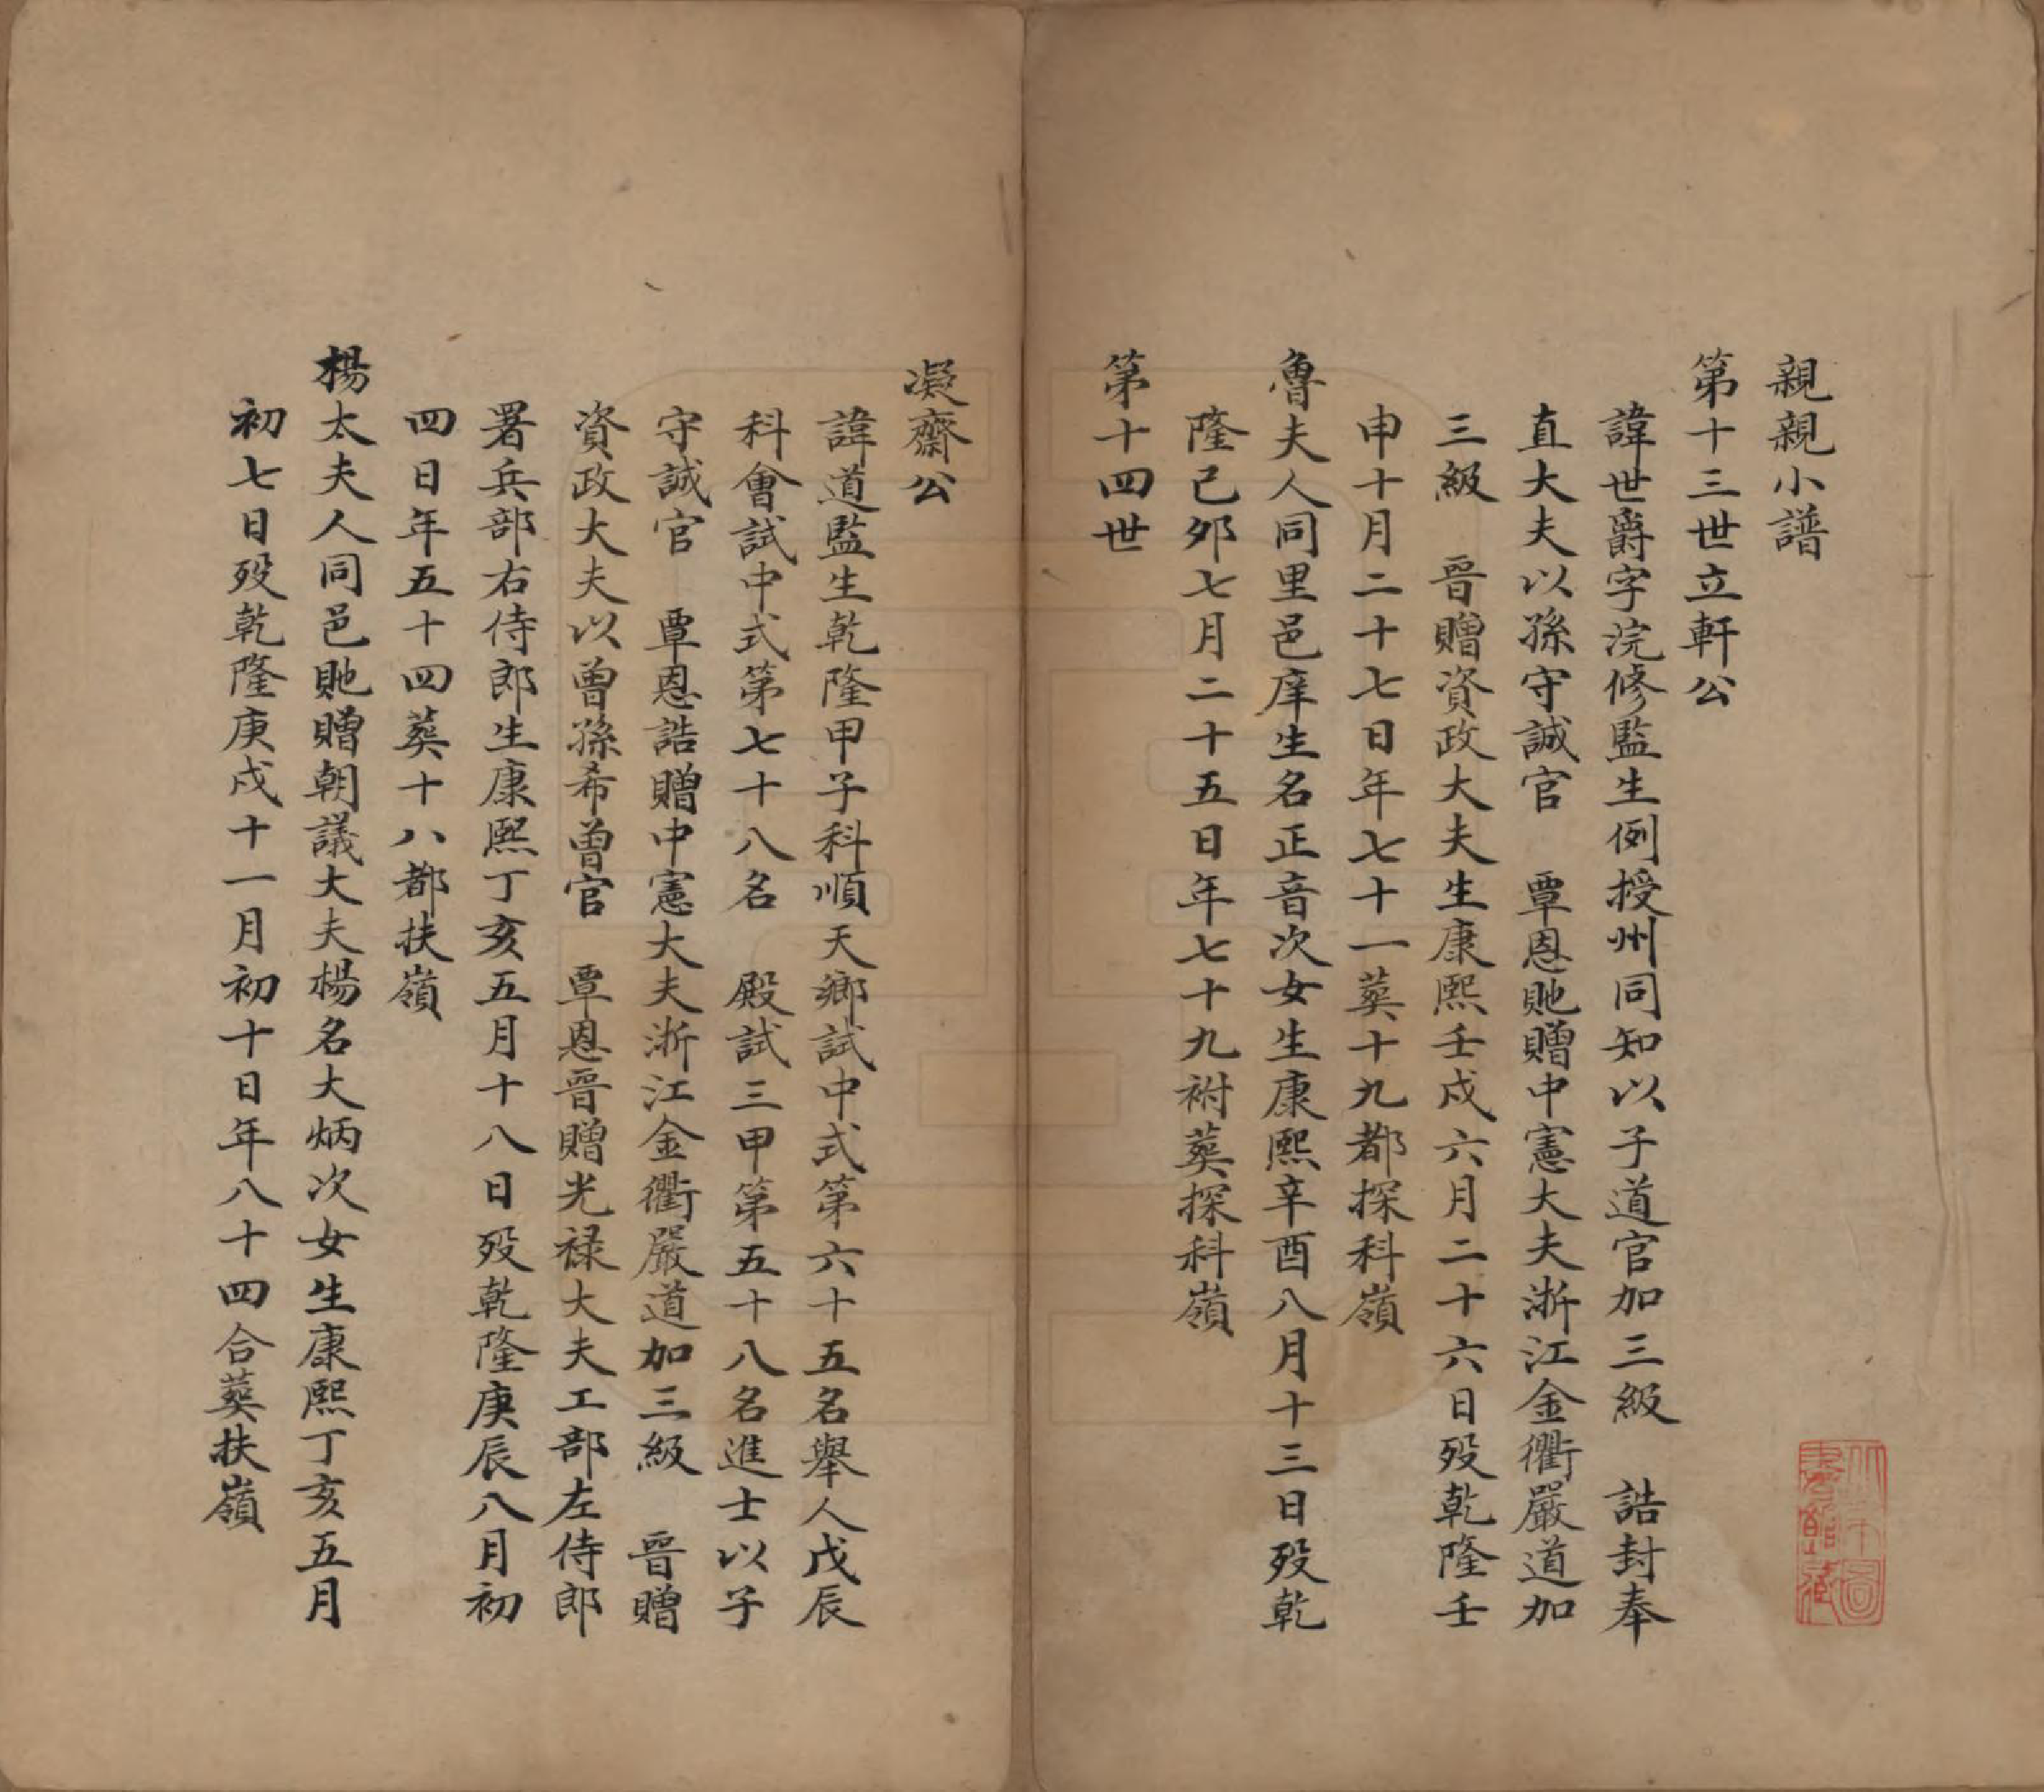 親親小譜
第十三世立軒公
諱世爵字浣修監生例授州同知以子道官加三級　誥封奉
直大夫以孫守誠官　覃恩貤贈中憲大夫浙江金衢嚴道加
三級　晉贈資政大夫生康熙壬戌六月二十六日歿乾隆壬
申十月二十七日年七十一葬十九都探科嶺
魯夫人同里邑庠生名正音次女生康熙辛酉八月十三日歿乾
隆己夘七月二十五日年七十九祔葬探科嶺
第十四世
凝齋公
諱道監生乾隆甲子科順天鄉試中式第六十五名舉人戊辰
科會試中式第七十八名　殿試三甲第五十八名進士以子
守誠官　覃恩誥贈中憲大夫浙江金衢嚴道加三級　晉贈
資政大夫以曾孫希曾官　覃恩晉贈光祿大夫工部左侍郎
署兵部右侍郎生康熙丁亥五月十八日歿乾隆庚辰八月初
四日年五十四葬十八都扶嶺
楊太夫人同邑貤贈朝議大夫楊名大炳次女生康熙丁亥五月
初七日歿乾隆庚戌十一月初十日年八十四合葬扶嶺